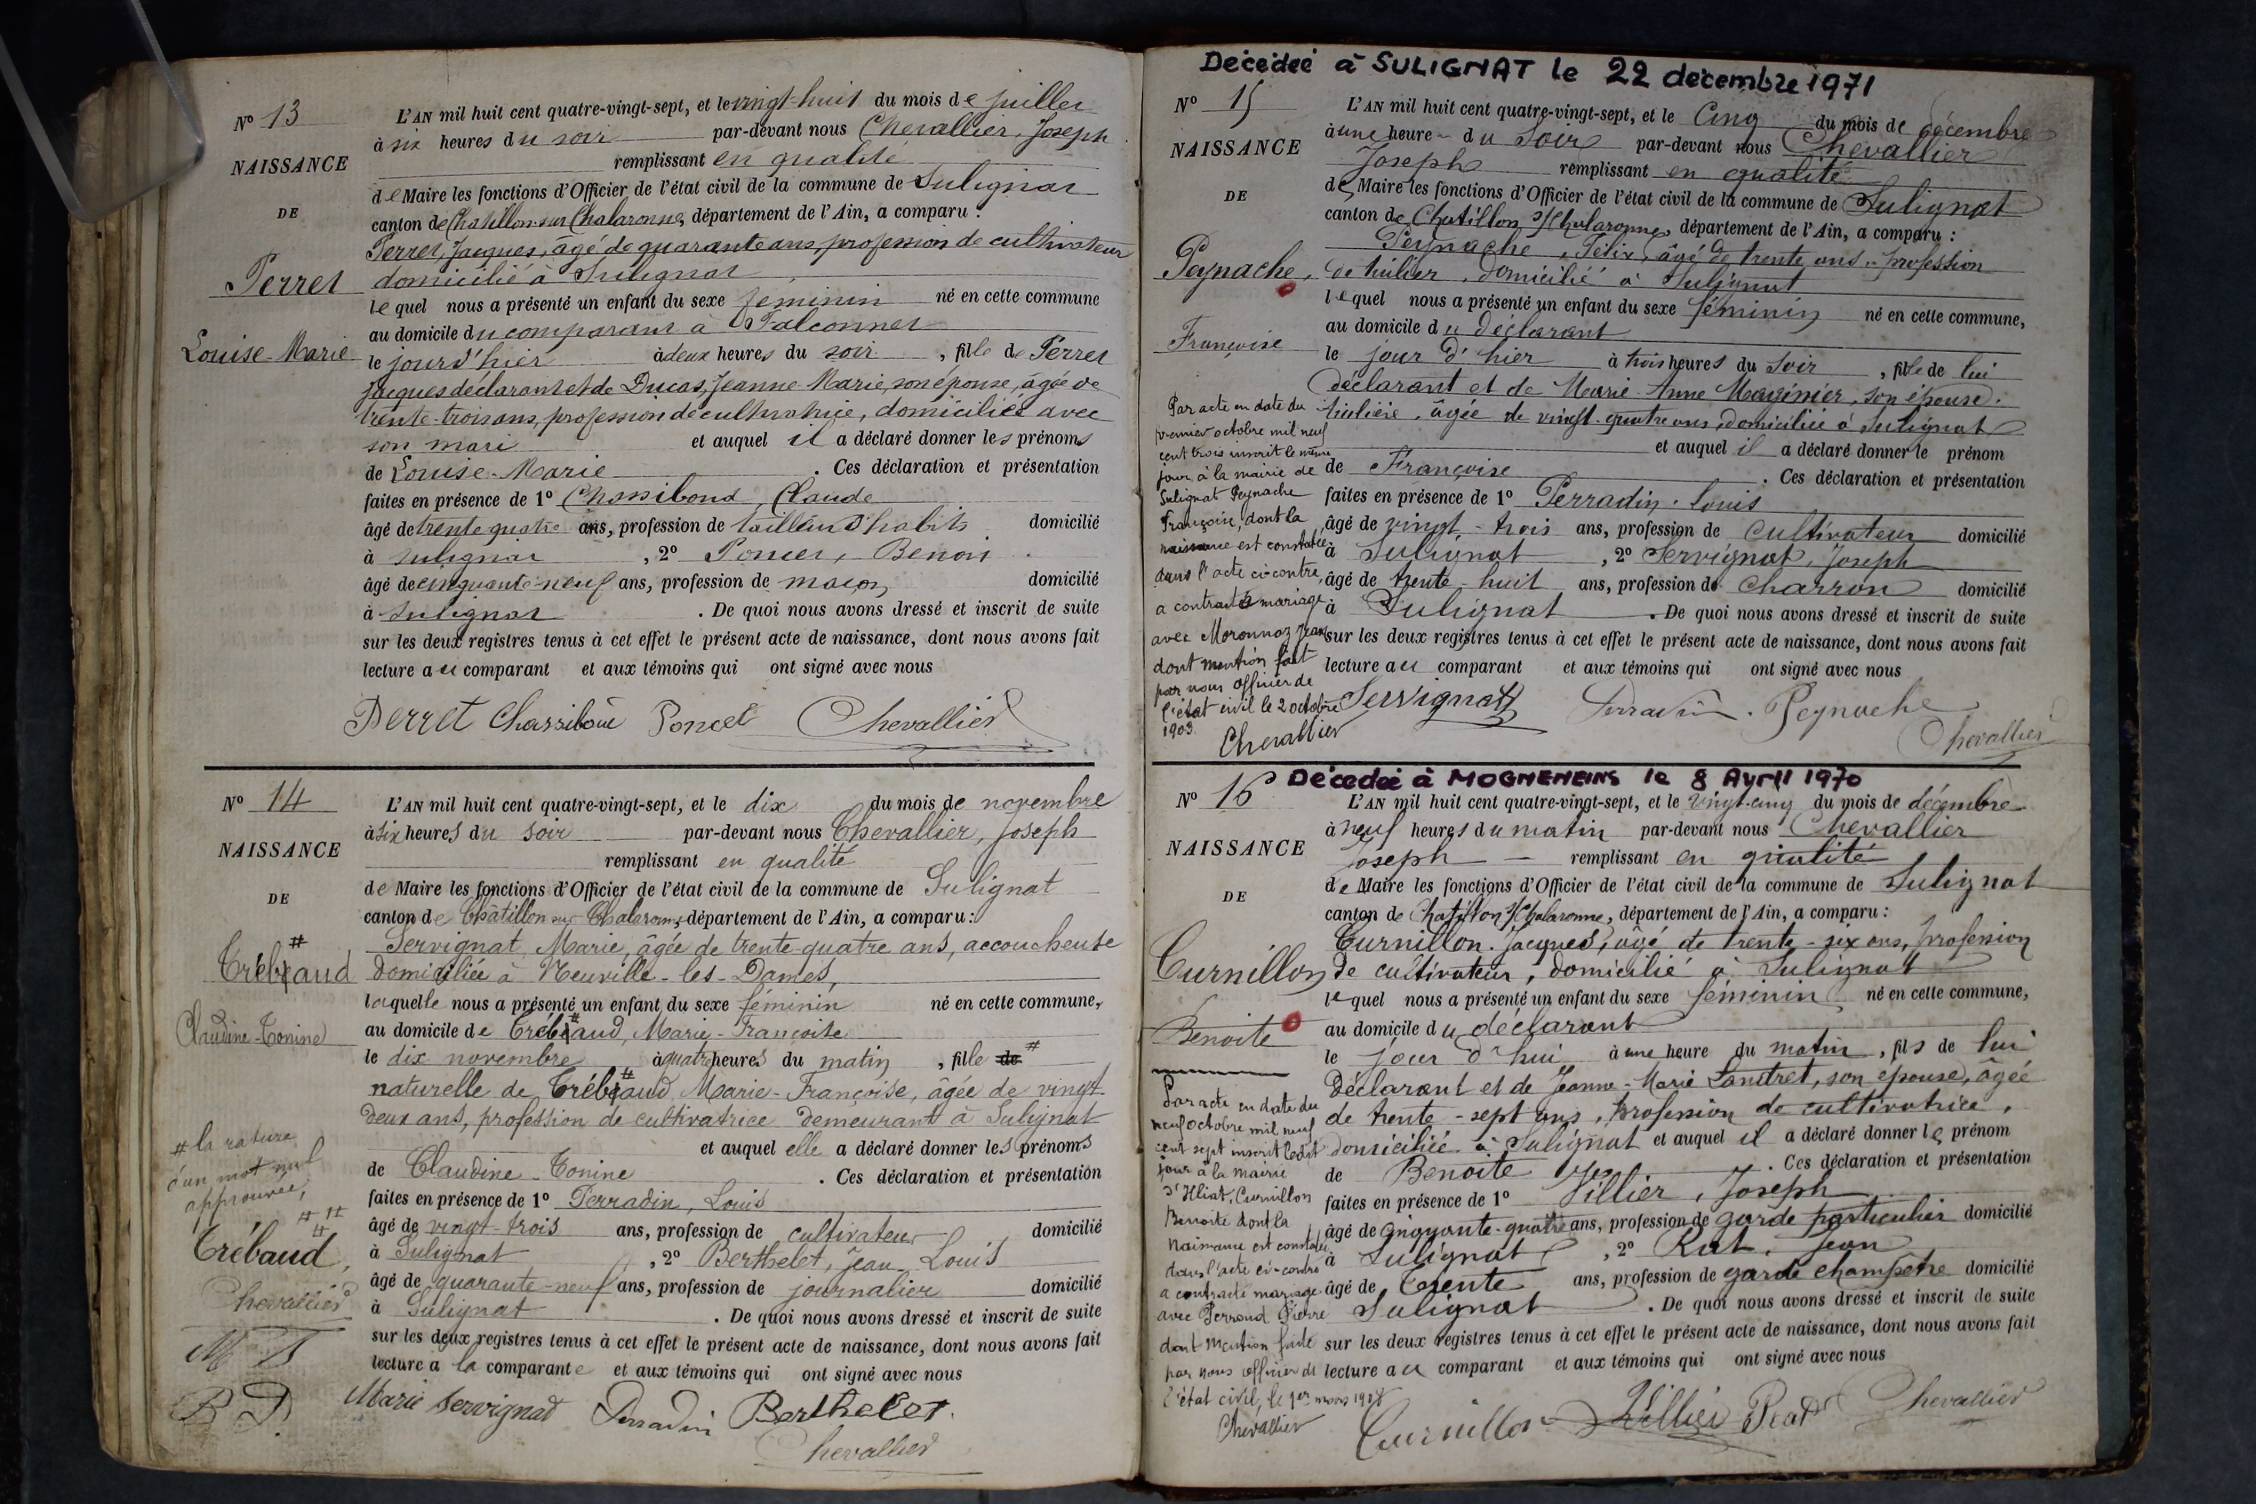 N° 13
NAISSANCE
DE
Perret
Louise-Marie
L'AN mil huit cent quatre-vingt-sept, et le vingt-huit du mois de juillet
à six heures du soir par-devant nous Chevallier, Joseph
remplissant en qualité
de Maire les fonctions d'Officier de l'état civil de la commune de Sulignat
canton de Chatillon-sur-Chalaronne, département de l'Ain, a comparu :
Perret, Jacques, âgé de quarante ans, profession de cultivateur
domicilié à Sulignat
lequel nous a présenté un enfant du sexe féminin né en cette commune
au domicile du comparant à Falconnet
le jourd'hier à deux heures du soir, fille de Perret
Jacques déclarant et de Ducas, Jeanne-Marie, son épouse, âgée de
trente-trois ans, profession de cultivatrice, domiciliée avec
son mari et auquel il a déclaré donner les prénoms
de Louise-Marie. Ces déclaration et présentation
faites en présence de 1° Chassiboud, Claude
âgé de trente quatre ans, profession de tailleur d'habits domicilié
à Sulignat, 2° Poncet, Benoit
âgé de cinquante-neuf ans, profession de maçon domicilié
à Sulignat. De quoi nous avons dressé et inscrit de suite
sur les deux registres tenus à cet effet le présent acte de naissance, dont nous avons fait
lecture au comparant et aux témoins qui ont signé avec nous
Perret Chassiboud Poncet Chevallier
N° 14
NAISSANCE
DE
#
Trébaud
Claudine-Tonine
L'AN mil huit cent quatre-vingt-sept, et le dix du mois de novembre
à six heures du soir par-devant nous Chevallier, Joseph
remplissant en qualité
de Maire les fonctions d'Officier de l'état civil de la commune de Sulignat
canton de Châtillon sur Chalaronne, département de l'Ain, a comparu :
Servignat, Marie, âgée de trente-quatre ans, accoucheuse
domiciliée à Neuville-les-Dames,
laquelle nous a présenté un enfant du sexe féminin né en cette commune,
au domicile de Trébaud, Marie-Françoise
le dix novembre à quatre heures du matin, fille de #
naturelle de Trébaud Marie-Françoise, âgée de vingt
deux ans, profession de cultivatrice demeurant à Sulignat
et auquel elle a déclaré donner les prénoms
de Claudine-Tonine. Ces déclaration et présentation
faites en présence de 1° Perradin, Louis
âgé de vingt-trois ans, profession de cultivateur domicilié
à Sulignat, 2° Berthelet, Jean Louis
âgé de quarante-neuf ans, profession de journalier domicilié
à Sulignat. De quoi nous avons dressé et inscrit de suite
sur les deux registres tenus à cet effet le présent acte de naissance, dont nous avons fait
lecture à la comparante et aux témoins qui ont signé avec nous
# la rature
d'un mot nul
approuvée,
# #
#
Trébaud,
Chevallier
M S
B P.
Marie Servignat Perradin Berthelet.
Chevallier
Décédée à SULIGNAT le 22 décembre 1971
N° 15
NAISSANCE
DE
Peynache,
Françoise
L'AN mil huit cent quatre-vingt-sept, et le Cinq du mois de décembre
à une heure du soir par-devant nous Chevallier
Joseph remplissant en qualité
de Maire les fonctions d'Officier de l'état civil de la commune de Sulignat
canton de Chatillon s/Chalaronne, département de l'Ain, a comparu :
Peynache, Félix, âgé de trente ans, profession
de tuilier, domicilié à Sulignat
lequel nous a présenté un enfant du sexe féminin né en cette commune,
au domicile du déclarant
le jour d'hier à trois heures du soir, fille de lui
déclarant et de Marie-Anne Maginier, son épouse,
tuilière, âgée de vingt-quatre ans, domiciliée à Sulignat
et auquel il a déclaré donner le prénom
de Françoise. Ces déclaration et présentation
faites en présence de 1° Perradin, Louis
âgé de vingt-trois ans, profession de cultivateur domicilié
à Sulignat, 2° Servignat, Joseph
âgé de trente-huit ans, profession de charron domicilié
à Sulignat. De quoi nous avons dressé et inscrit de suite
sur les deux registres tenus à cet effet le présent acte de naissance, dont nous avons fait
lecture au comparant et aux témoins qui ont signé avec nous
Par acte en date du
premier octobre mil neuf
cent trois inscrit le même
jour à la mairie de
Sulignat Peynache
Françoise, dont la
naissance est constatée
dans l'acte ci-contre,
a contracté mariage
avec Moronnoz Jean
dont mention fait
par nous officier de
l'état civil le 2 octobre
1903
Chevallier
Servignat Perradin. Peynache
Chevallier
Décédée à MOGNENEINS le 8 Avril 1970
N° 16
NAISSANCE
DE
Curnillon
Benoite
L'AN mil huit cent quatre-vingt-sept, et le vingt-cinq du mois de décembre
à neuf heures du matin par-devant nous Chevallier
Joseph remplissant en qualité
de Maire les fonctions d'Officier de l'état civil de la commune de Sulignat
canton de Chatillon s/Chalaronne, département de l'Ain, a comparu :
Curnillon Jacques, âgé de trente-six ans, profession
de cultivateur, domicilié à Sulignat
lequel nous a présenté un enfant du sexe féminin né en cette commune,
au domicile du déclarant
le jour d'hui à une heure du matin, fils de lui
Déclarant et de Jeanne-Marie Landret, son épouse, âgée
de trente-sept ans, profession de cultivatrice,
domiciliée à Sulignat et auquel il a déclaré donner le prénom
de Benoite. Ces déclaration et présentation
faites en présence de 1° Tillier, Joseph
âgé de cinquante-quatre ans, profession de garde particulier domicilié
à Sulignat, 2° Rat, Jean
âgé de trente ans, profession de garde champêtre domicilié
Sulignat. De quoi nous avons dressé et inscrit de suite
sur les deux registres tenus à cet effet le présent acte de naissance, dont nous avons fait
lecture au comparant et aux témoins qui ont signé avec nous
Par acte en date du
neuf octobre mil neuf
cent sept inscrit ledit
jour à la mairie
d'Illiat, Curnillon
Benoite dont la
naissance est constatée
dans l'acte ci-contre
a contracté mariage
avec Perroud Pierre
dont mention faite
par nous officier de
l'état civil, le 1er mars 1908
Chevallier
Curnillon Tillier Rat Chevallier